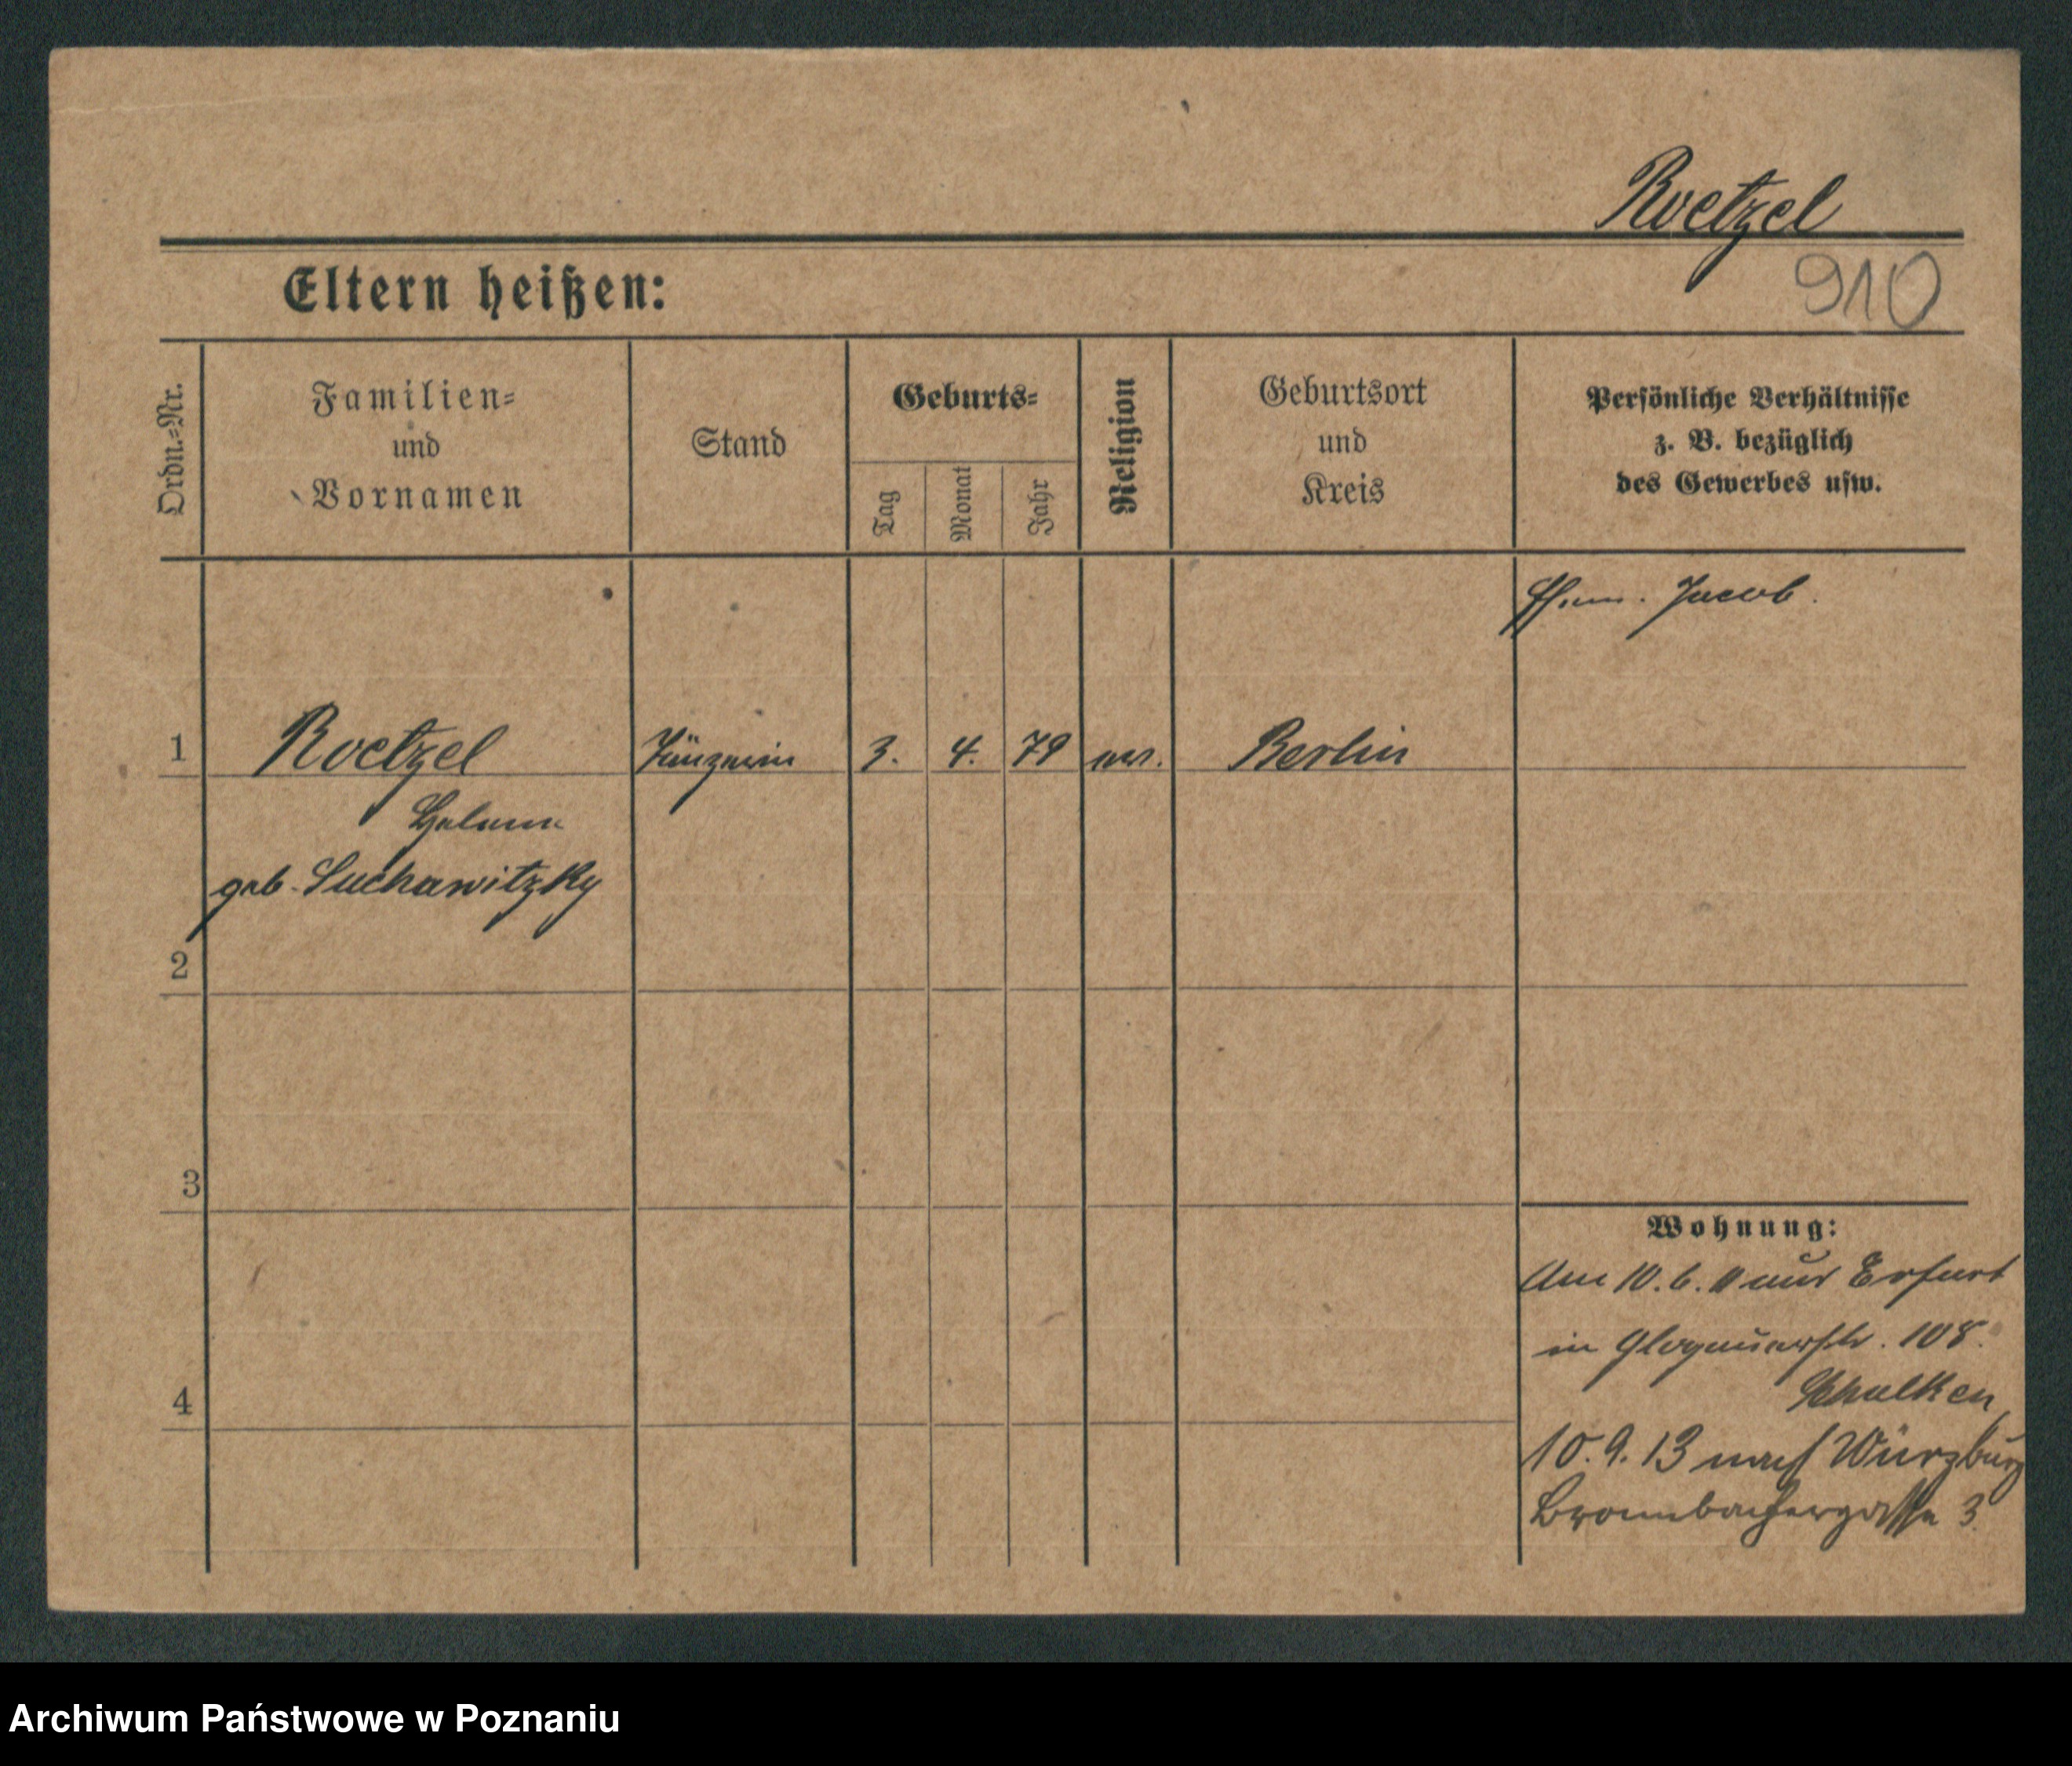 Roetzel
910
Eltern heißen:
Ordn.=Nr.
Familien=
und
Vornamen
Stand
Geburts=
Tag
Monat
Jahr
Religion
Geburtsort
und
Kreis
Persönliche Verhältnisse
z. B. bezüglich
des Gewerbes usw.
Ehem. Jacob.
1
Roetzel
3.
4.
79
ev.
Berlin
Helene
geb. Suchawitzky
2
3
4
Wohnung:
Am 10.6.11 aus Erfurt
in Glogauerstr. 108.
10.9.13 nach Würzburg
Bronnbachergasse 3.
Archiwum Państwowe w Poznaniu